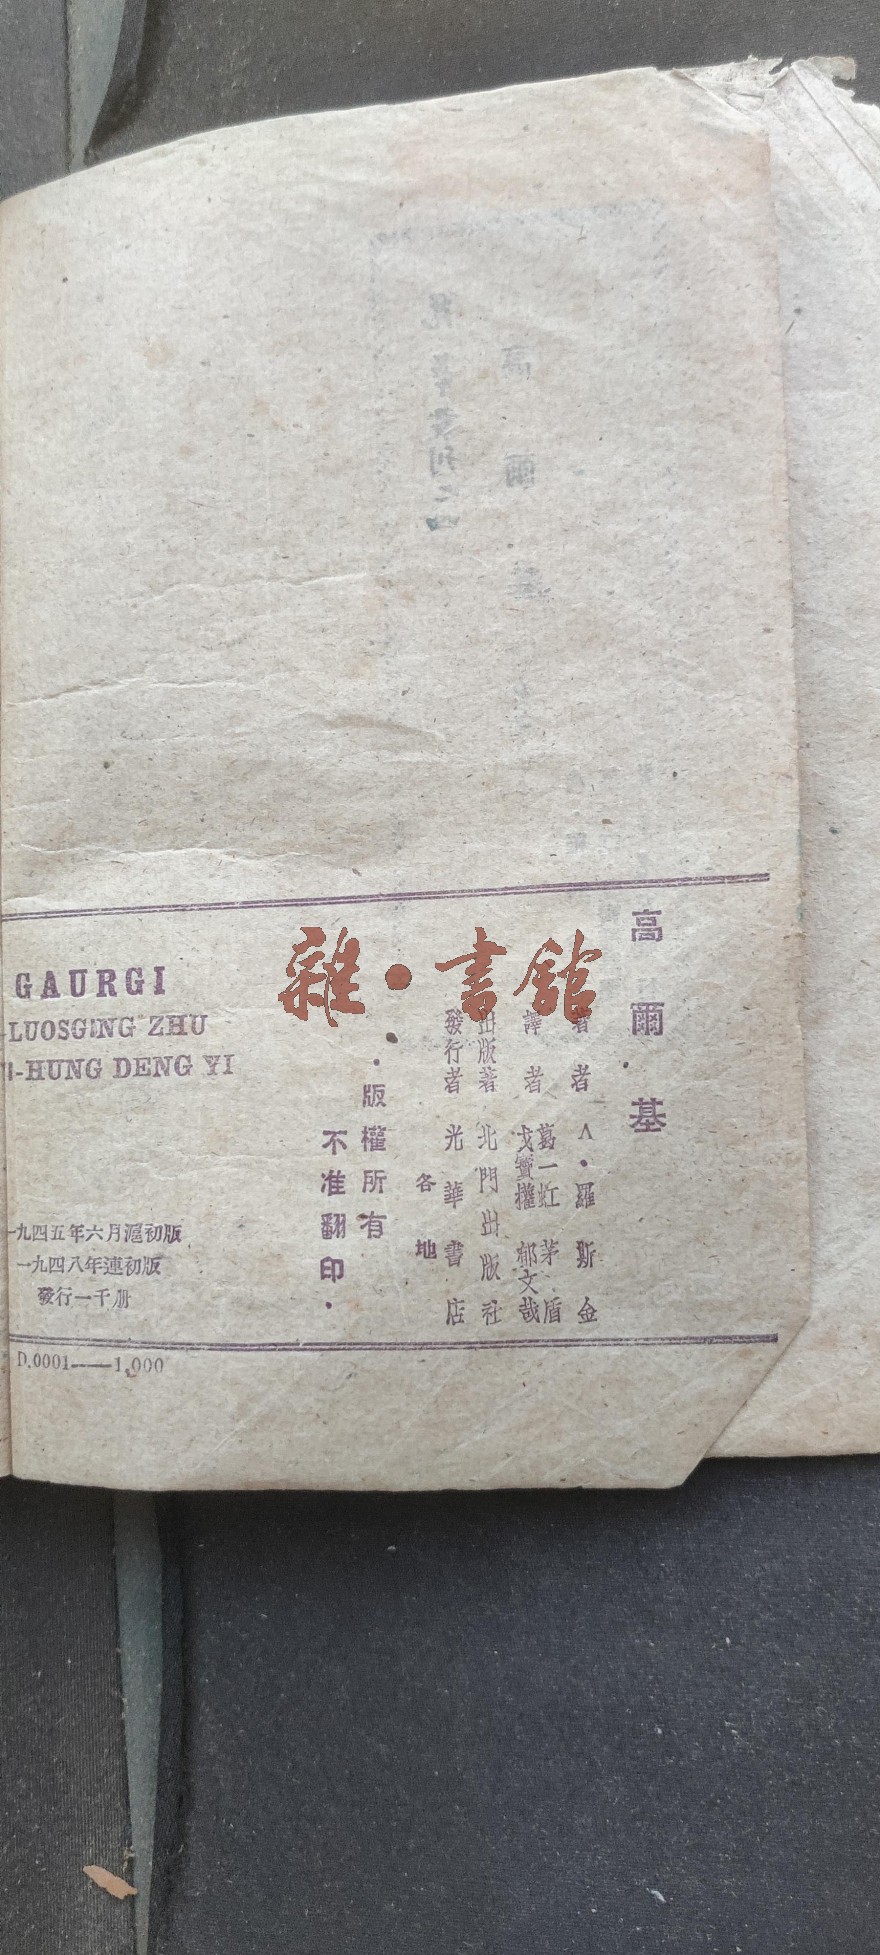 高爾基
著者 A·羅斯金
譯者 葛一虹 茅盾
戈寶權 郁文哉
出版者 北門出版社
發行者 光華書店
各地
·版權所有
不准翻印·
GAURGI
LUOSGING ZHU
-HUNG DENG YI
一九四五年六月滬初版
一九四八年連初版
發行一千册
D.0001——1,000
雜·書館